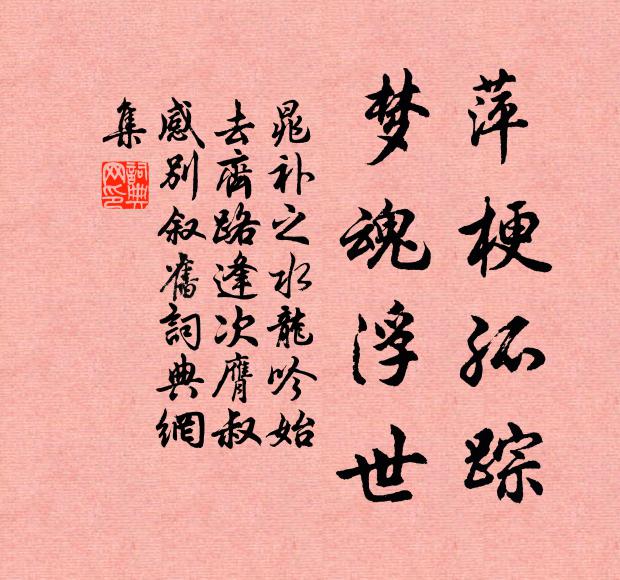 萍梗孤踪
梦魂浮世
晁补之水龍吟始
去齊路逢次膺叔
感别叙舊詞典網
集
詞典
网印